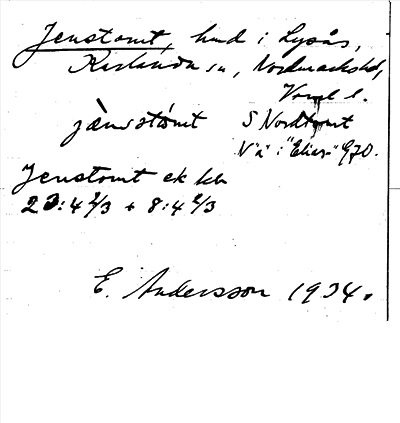 Jenstomt, hmd i Lysås,
Karlanda sn, Nordmarks hd,
Vrml l.
jènstómt S Nordtomt
N "ä" i "Elias" G70.
Jenstomt ek kb
23:4 2/3 + 8:4 2/3
E. Andersson 1934.